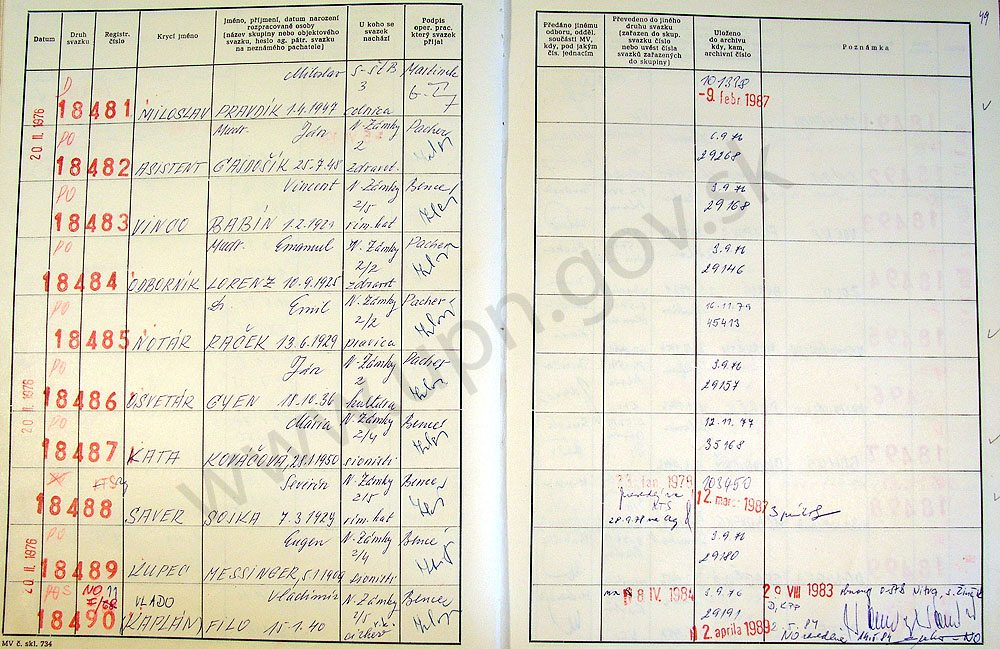 49
Datum
Druh svazku
Registr. číslo
Krycí jméno
Jméno, příjmení, datum narození rozpracované osoby (název skupiny nebo objektového svazku, heslo ag. pátr. svazku na neznámého pachatele)
U koho se svazek nachází
Podpis oper. prac. který svazek přijal
Předáno jinému odboru, odděl. součásti MV, kdy, pod jakým čís. jednacím
Převedeno do jiného druhu svazku (zařazen do skup. svazku číslo nebo uvést čísla svazků zařazených do skupiny)
Uloženo do archivu kdy, kam, archivní číslo
Poznámka
20 II. 1976
Miloslav S-ŠtB
3
18481 MILOSLAV PRAVDÍK 1.4.1947 colnica
-9. febr 1987
PO Mudr. Ján N. Zámky Pacher
2
18482 ASISTENT GAJDOŠÍK 25.7.48 zdravot.
29268
PO Vincent N. Zámky Bence
2/5
18483 VINCO BABÍN 1.2.1921 rím. kat
3.9.76
29168
PO Mudr. Emanuel N. Zámky Pacher
2/2
18484 ODBORNÍK LORENZ 10.9.1925 zdravot
3.9.76
29146
PO Dr. Emil N. Zámky Pacher
2/2
18485 NOTÁR RAČEK 13.6.1929 pravica
16.11.79
45413
20 II. 1976
PO Ján N. Zámky Pacher
2
18486 OSVETÁR GYEN 18.10.36 kultúra
3.9.76
29157
PO Mária N. Zámky Bence
2/4
18487 KATA KOVÁČOVÁ, 28.1.1950 sionisti
12.11.77
35168
Severín N. Zámky Bence
2/5
18488 SAVER SOJKA 7.3.1924 rím. kat
jan. 1979
103450
2. mar. 1987
20 II. 1976
PO Eugen N. Zámky Bence
2/4
18489 KUPEC MESSINGER, 5.1.1909 sionisti
3.9.76
2980
VLADO Vladimír N. Zámky Bence
2/5
18490 (KAPLÁN) FILO 15.1.40
8 IV. 1984
3.9.76
29191
2. apríla 1989
29 VIII 1983
MV č. skl. 734
www.upn.gov.sk